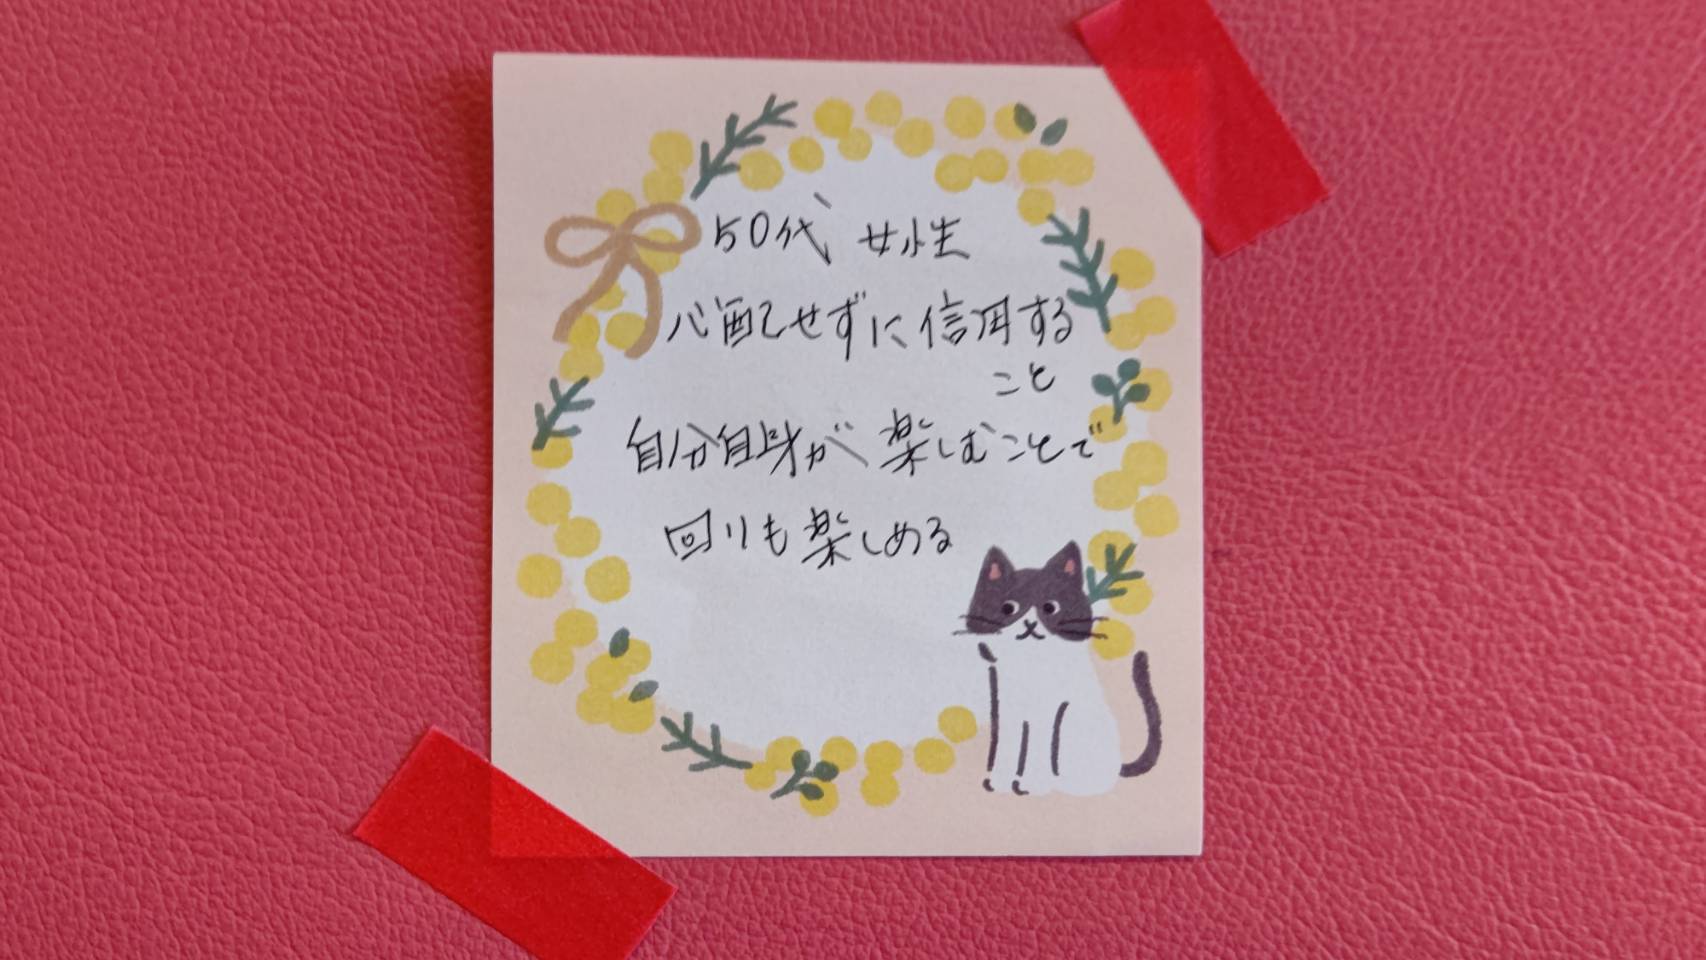 50代 女性
心配せずに信用する
こと
自分自身が楽しむことで
回りも楽しめる